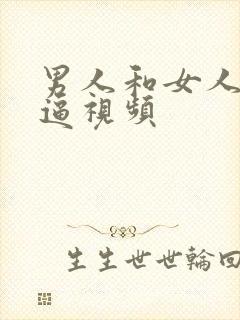 男人和女人
逼視頻
生生世世輪回